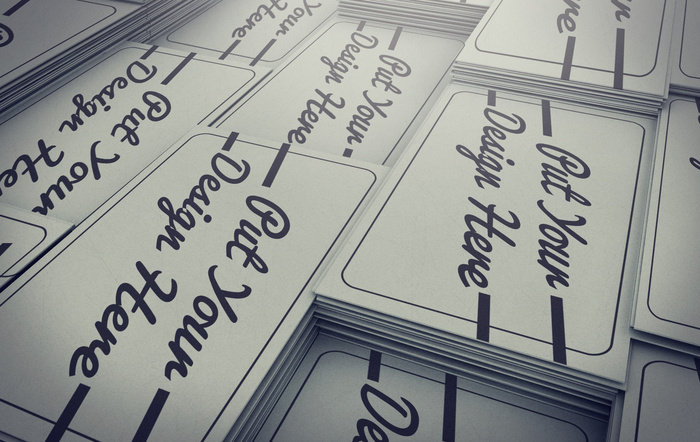 Your
Here
Put Your
Design Here
Put Your
Design Here
Put Your
Design Here
Put Your
Design Here